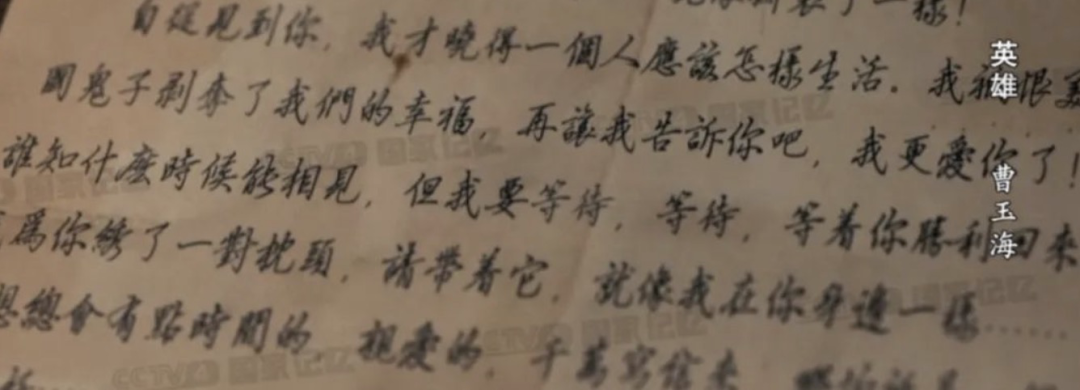 了一樣！
自從見到你，我才曉得一個人應該怎樣生活。我恨美
國鬼子剥奪了我們的幸福，再讓我告訴你吧，我更愛你了！
誰知什麽時候能相見，但我要等待，等待，等着你勝利回來
爲你綉了一對枕頭，請帶着它，就像我在你身邊一樣……
想總會有點時間的 親愛的，千萬寫信來
英雄
曹玉海
CCTV 國家记忆